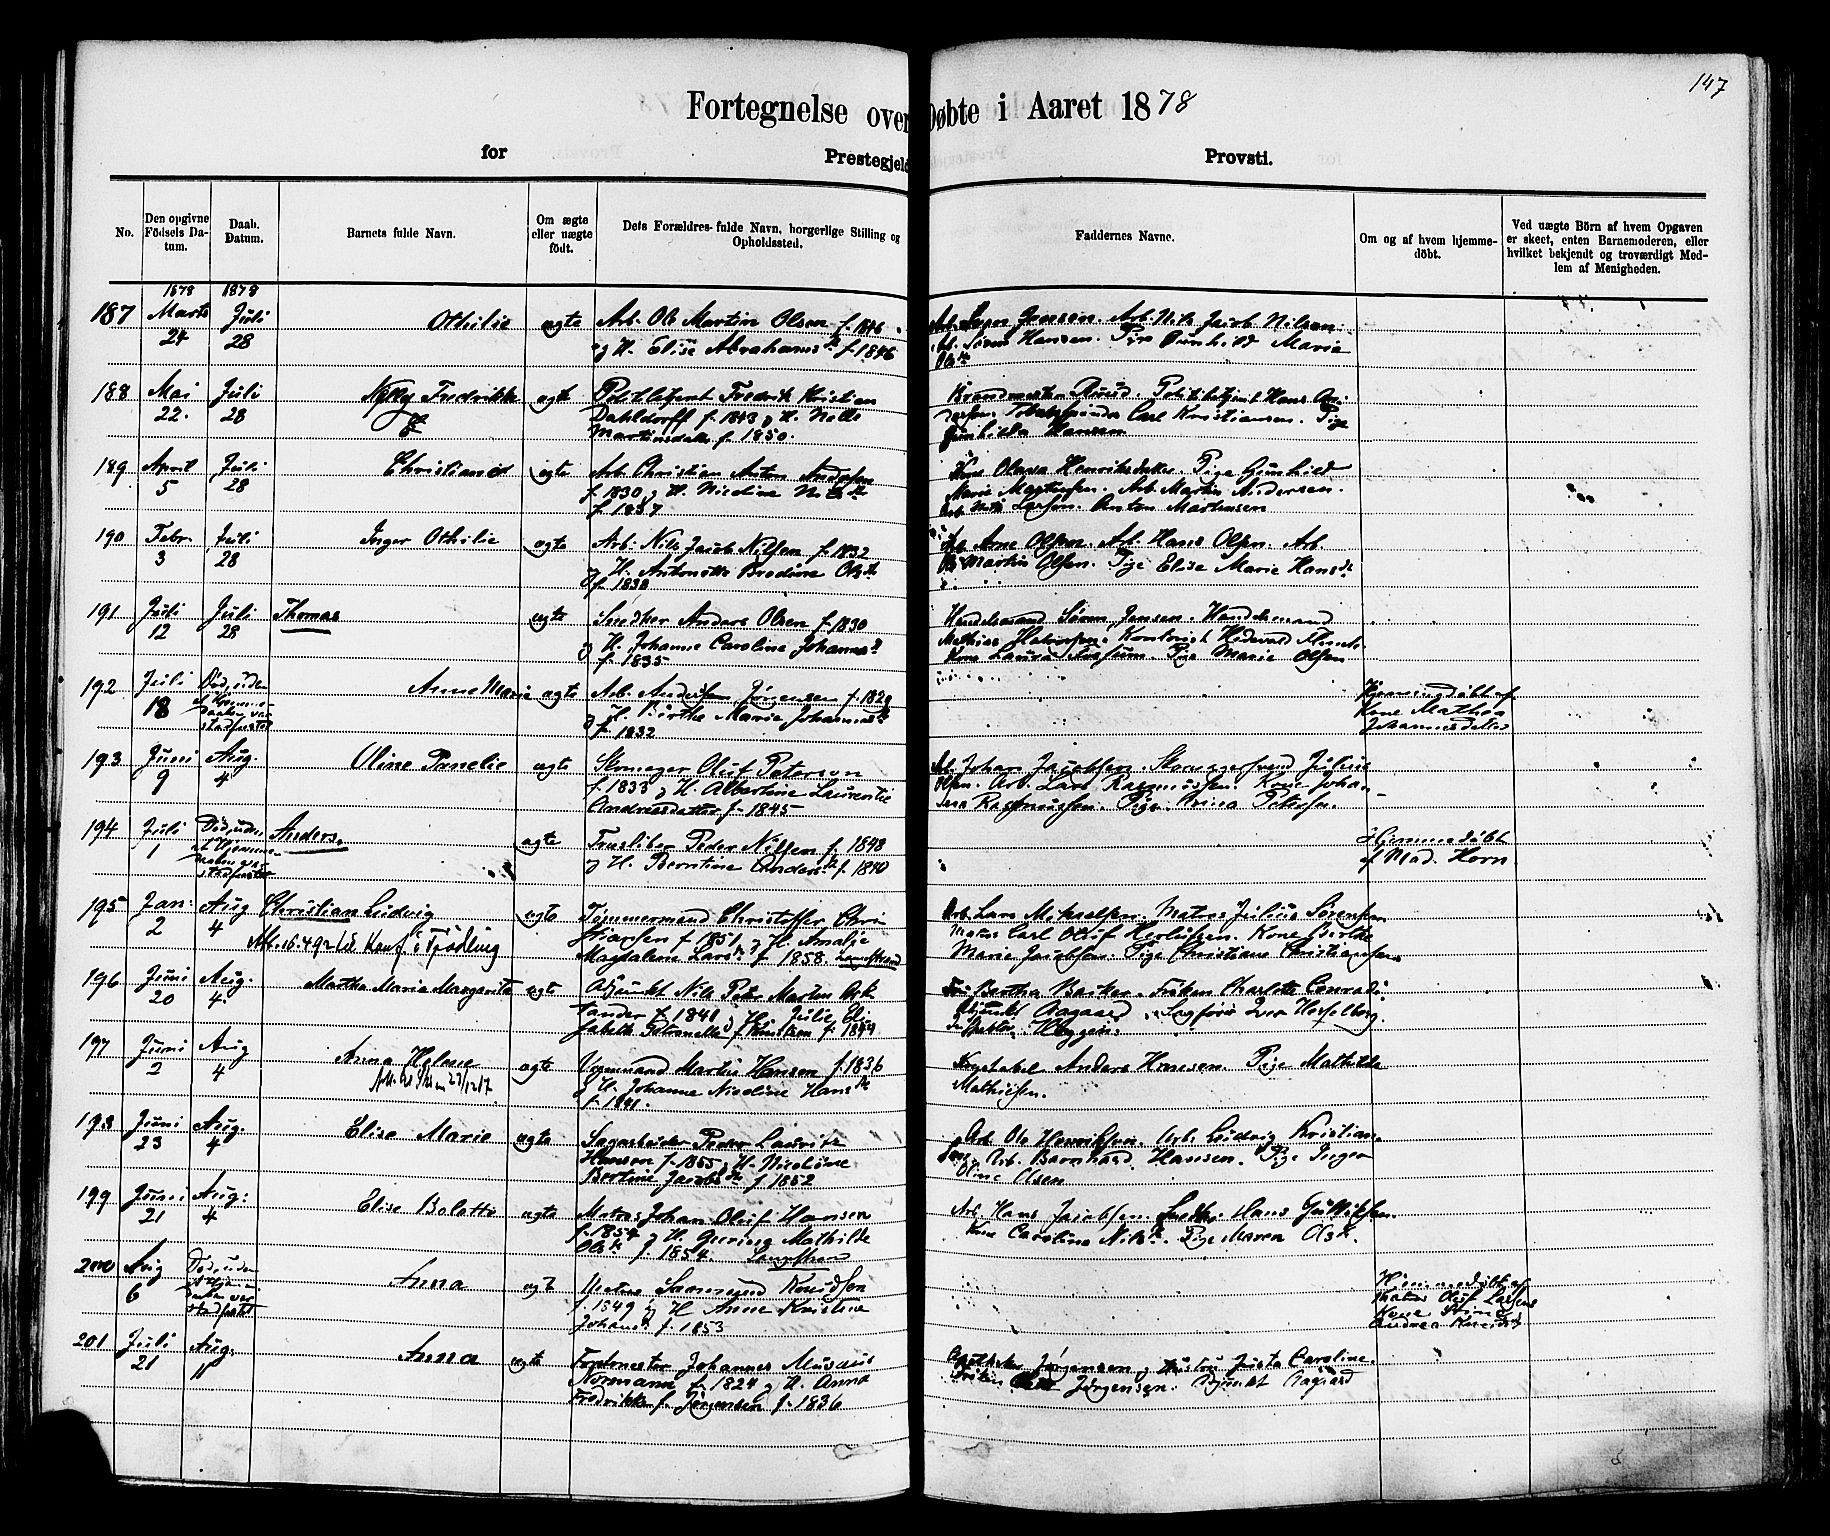 147
Fortegnelse over Døbte i Aaret 1878
for Prestegjeld Provsti.
No.
Den opgivne Födsels Datum.
Daab. Datum.
Barnets fulde Navn.
Om ægte eller uægte födt.
Dets Forældres fulde Navn, borgerlige Stilling og Opholdssted.
Faddernes Navne.
Om og af hvem hjemmedöbt.
Ved uægte Börn af hvem Opgaven er skeet, enten Barnemoderen, eller hvilket bekjendt og troværdigt Medlem af Menigheden.
1878 1878
187 Marts 24 Juli 28 Othilie ægte Arb. Ole Martin Olsen f. 1846
og H. Elise Abrahamsdr f. 1846
Arb. Sven Jensen. Arb. Nils Jacob Nilsen.
Arb. Søren Hansen. Pige Gunhild Marie
Olsdr
188 Mai 22. Juli 28 Nelly Fredrikke ægte Politibetjent Fredrik Kristian
Dahldorff f. 1843 og H. Nelle
Martinsdatter f. 1850.
Brandmester Ruud. Politibetjent Hans An-
dersen. Carl Kristiansen. Pige
Gunhilda Hansen
189 April 5 Juli 28 ægte Arb. Christian Anton Andersen
f. 1830 og H. Nicoline Nilsdr
f. 1837
Kone Olava Henriksdatter. Pige Gunhild
Marie Mathisen. Arb. Martin Andersen.
Arb. Nils Larsen. Anton Mathisen
190 Febr. 3 Juli 28 Inger Othilie ægte Arb. Nils Jacob Nilsen f. 1832
og H. Antonette Bredine Olsdr
f. 1838
Arb. Arne Olsen. Arb. Hans Olsen. Arb.
Ole Martin Olsen. Pige Elise Marie Hansdr
191 Juli 12 Juli 28 Thomas ægte Snedker Anders Olsen f. 1830
og H. Johanne Caroline Johannesdr
f. 1835
Handelsmand Søren Jensen. Handelsmand
Mathias Kontorist
Kone Laura Pige Marie Olsen
192 Juli 18 Død, uden at Hjemmedaaben var stadfæstet Anne Marie ægte Arb. Jørgensen f. 1829
og H. Birthe Marie Johannesdr
f. 1832
Hjemmedøbt af
Kone Mathea
Johannesdatter
193 Juni 9 Aug. 4 Oline Pauelie ægte Skomager Oluf Peterson
f. 1833 og H. Albertine Laurentie
Andreasdatter f. 1845
Arb. Johan Jacobsen. Skomagersvend Julius
Olsen. Arb. Lars Rasmussen. Kone Johan-
Rasmussen. Pige Petersen.
194 Juli 1 Død, uden at Hjemmedaaben var stadfæstet Anders. ægte Peder Nilsen f. 1848
og H. Berntine Andersdr f. 1840
Hjemmedøbt
af Mad. Horn
195 Jan: 2 Aug 4 Christian Ludvig ægte Tømmermand Christoffer Chri-
stiansen f. 1851 og H. Amalie
Magdalene Larsdr f. 1858. Langestrand
Att. 16.4.92 til Konf. i Tjødling
Arb. Lars Mikaelsen. Matros Julius Sørensen
Matros Carl Oluf Herlufsen. Kone Birthe
Marie Jacobsen. Pige Christiane Christiansen.
196 Juni 20 Aug. 4 Martha Maria Margarita ægte Adjunkt Nils Peter Martin Ask
lander f. 1841 og H. Julie Eli-
sabeth Petronelle f. Knudsen f. 1849
Fru Bertha Barker. Frøken Charlotte Conradi.
Adjunkt Aagaard. Lagfører Iver Hesselberg.
197 Juni 2 Aug 4 Anna Helene ægte Vognmand Martin Hansen f. 1836
og H. Johanne Nicoline Hansdr
f. 1841.
Konstabel Anders Hansen. Pige Mathilde
Mathiesen.
198 Juni 23 Aug. 4 Elise Marie ægte Sagarbeider Peder Lauritz
Hansen f. 1855 og H. Nicoline
Bertine Jacobsdr f. 1852
Arb. Ole Henriksen. Arb. Ludvig Kristian-
sen. Arb. Bernhard Hansen. Pige Inger
Oline Olsen
199 Juni 21 Aug: 4 Elise Bolette ægte Matros Johan Oluf Hansen
f. 1854 og H. Mathilde
Olsdr f. 1854. Langestrand
Arb. Hans Jacobsen. Hans Gulliksen.
Kone Caroline Nilsdr. Pige Maren Ask.
200 Aug 6 Død, uden at Hjemmedaaben var stadfæstet Anna ægte Matros Knudsen
f. 1849 og H. Anne Kristine
Johansdr f. 1853
Hjemmedøbt af
Matros Oluf Larsens
Kone Stine
Andrea Knudsdr
201 Juli 21 Aug. 11 Anna ægte Johannes Musæus
Normann f. 1824 og H. Anna
Fredrikke f. Jørgensen f. 1836
Jørgensen og Hustru Justa Caroline.
Frøken Jørgensen. Adjunkt Aagaard